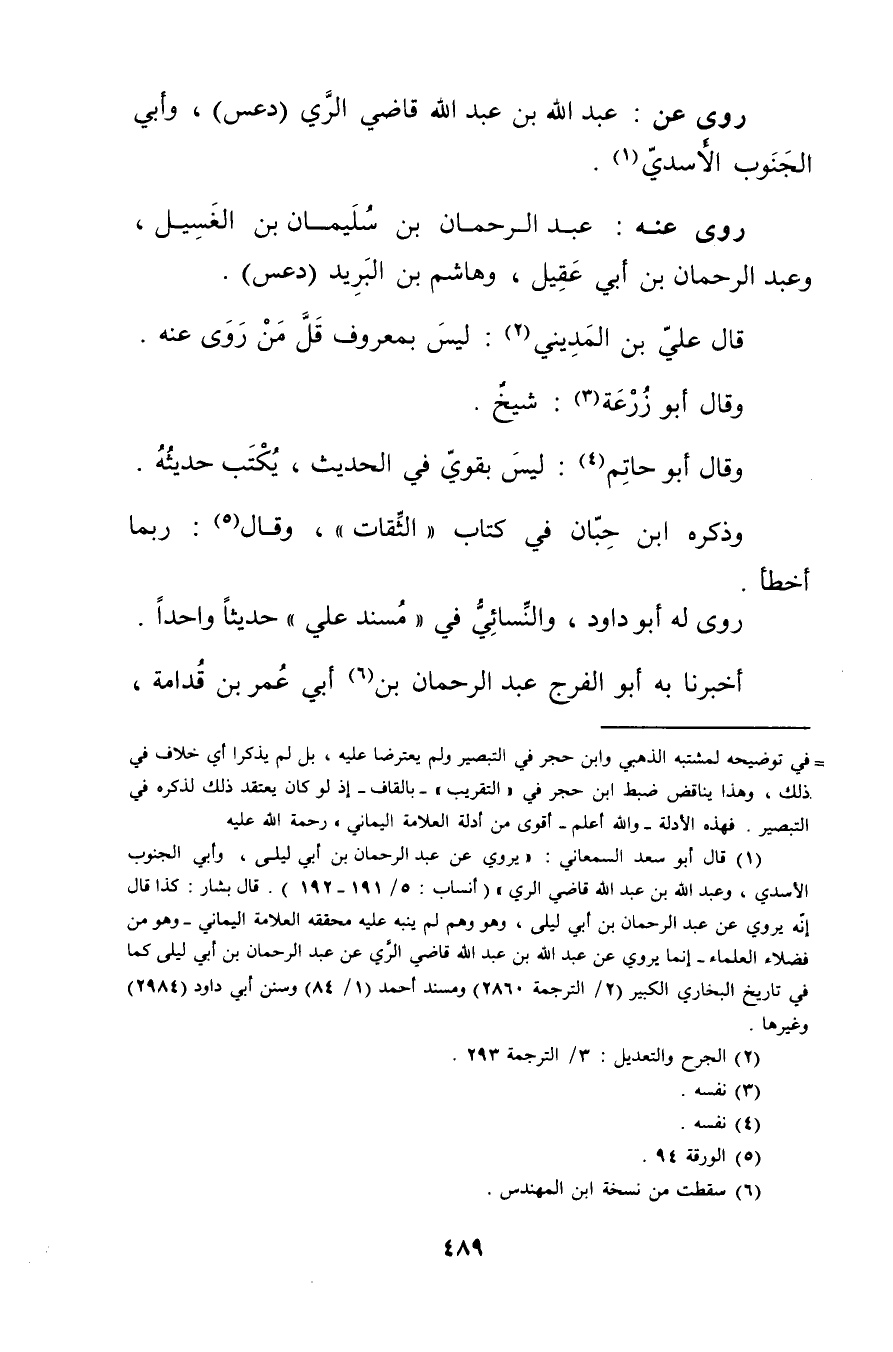 روى عن : عبد الله بن عبد الله قاضي الرَّي (دعس) ، وأبي
الجَنَوب الأَسديّ(١) .
روى عنـه : عبـد الـرحمـان بن سُلَيمـان بن الغَسِيـل ،
وعبد الرحمان بن أبي عَقِيل ، وهاشم بن البَرِيد (دعس) .
قال عليّ بن المَدِيني(٢) : ليسَ بمعروف قَلَّ مَنْ رَوَى عنه .
وقال أبو زُرْعَة(٣) : شيخٌ .
وقال أبو حاتِم(٤) : ليسَ بقويّ في الحديث ، يُكْتَب حديثُهُ .
وذكره ابن حِبّان في كتاب « الثِّقات » ، وقـال(٥) : ربما
أخطأ .
روى له أبو داود ، والنِّسائِيُّ في « مُسند علي » حديثاً واحداً .
أخبرنا به أبو الفرج عبد الرحمان بن(٦) أبي عُمر بن قُدامة ،
= في توضيحه لمشتبه الذهبي وابن حجر في التبصير ولم يعترضا عليه ، بل لم يذكرا أي خلاف في
ذلك ، وهذا يناقض ضبط ابن حجر في « التقريب » ـ بالقاف ـ إذ لو كان يعتقد ذلك لذكره في
التبصير . فهذه الأدلة ـ والله أعلم ـ أقوى من أدلة العلامة اليماني » رحمة الله عليه
(١) قال أبو سعد السمعاني : « يروي عن عبد الرحمان بن أبي ليلـى ، وأبي الجنوب
الأسدي ، وعبد الله بن عبد الله قاضي الري » ( أنساب : ٥/ ١٩١ ـ ١٩٢ ) . قال بشار : كذا قال
إنّه يروي عن عبد الرحمان بن أبي ليلى ، وهو وهم لم ينبه عليه محققه العلامة اليماني ـ وهو من
فضلاء العلماء ـ إنما يروي عن عبد الله بن عبد الله قاضي الرَّي عن عبد الرحمان بن أبي ليلى كما
في تاريخ البخاري الكبير (٢/ الترجمة ٢٨٦٠) ومسند أحمد (١/ ٨٤) وسنن أبي داود (٢٩٨٤)
وغيرها .
(٢) الجرح والتعديل : ٣/ الترجمة ٢٩٣ .
(٣) نفسه .
(٤) نفسه .
(٥) الورقة ٩٤ .
(٦) سقطت من نسخة ابن المهندس .
٤٨٩